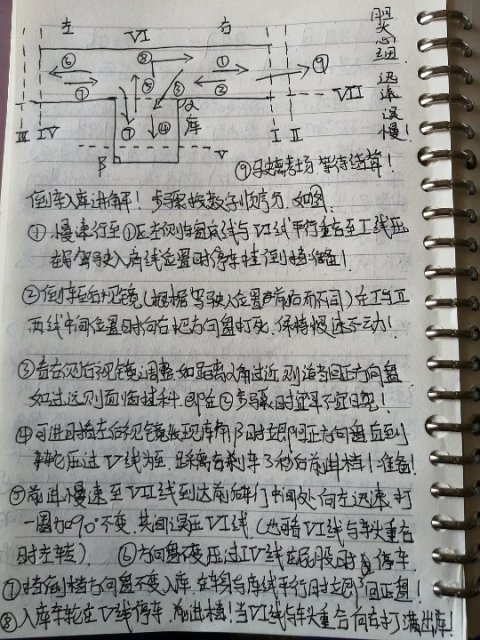 左 VI 右
胆大心细 迅速没慢!
⑥ ⑧ ① ⑨
⑦ ⑤ ③ ②
α VII
库
III IV ⑦ ④ I II
β V
⑨ 考场等待结算!
倒车入库进解! 步骤按数字顺序 如图
① 慢速行至①
线平行重合至I线
驾驶入库线位置时停车挂倒档准备!
② 倒车后视镜(根据驾驶入位置声前后而不同)在I与II
两线中间位置时向右把方向盘打死,保持慢速不动!
③ 看右侧后视镜调整,如距离α角过近,则适当回正方向盘
如过远则面临挂科,即在②步骤时宜早不宜晚!
④ 可进时看左后视镜发现库角β时立即回正方向盘直到
车轮压过V线为至,距离右刹车3秒后前进档!准备!
⑤ 前进慢速至VII线到达前车门中间处向左迅速打
一圈加90°不变,其间没压VI线(也可看VI线与车头重合
时左转) ⑥ 方向盘不变压过IV线在屁股时停车
⑦ 挂倒档方向盘不变入库,在车身与库线平行时立即回正盘!
⑧ 入库车轮在V线停车,前进档!当VI线与车头重合向右打满出库!